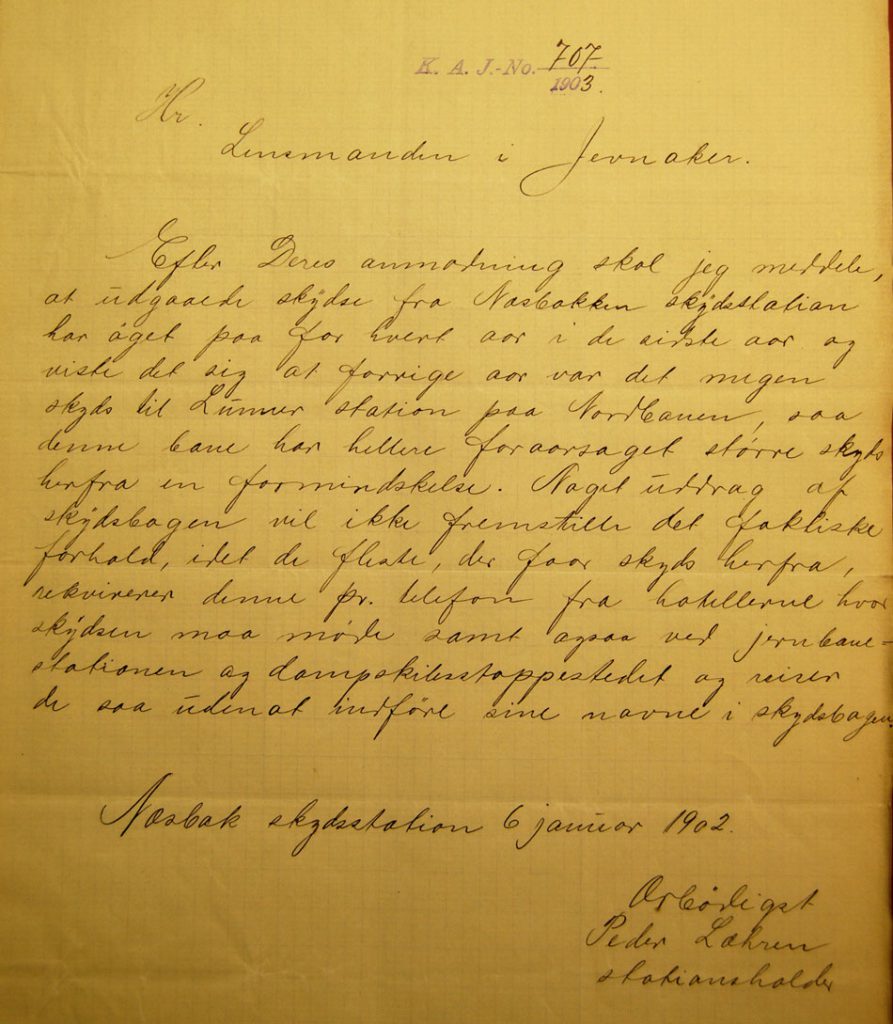 K. A. J.-No. 707
1903.
Hr.
Lensmanden i Jevnaker.
Efter Deres anmodning skal jeg meddele,
at udgaaede skydse fra Næsbakken skydsstation
har øget paa for hvert aar i de sidste aar og
viste det sig at forrige aar var det megen
skyds til Lunner station paa Nordbanen, saa
denne bane har hellere foraarsaget større skyds
herfra en formindskelse. Noget uddrag af
skydsbogen vil ikke fremstille det faktiske
forhold, idet de fleste, der faar skyds herfra,
rekvirerer denne pr. telefon fra hotellerne hvor
skydsen maa møde samt ogsaa ved jernbane=
stationen og dampskibsstoppestedet og reiser
de saa uden at indføre sine navne i skydsbogen.
Næsbak skydsstation 6 januar 1902.
Ærbødigst
Peder Læhren
stationsholder